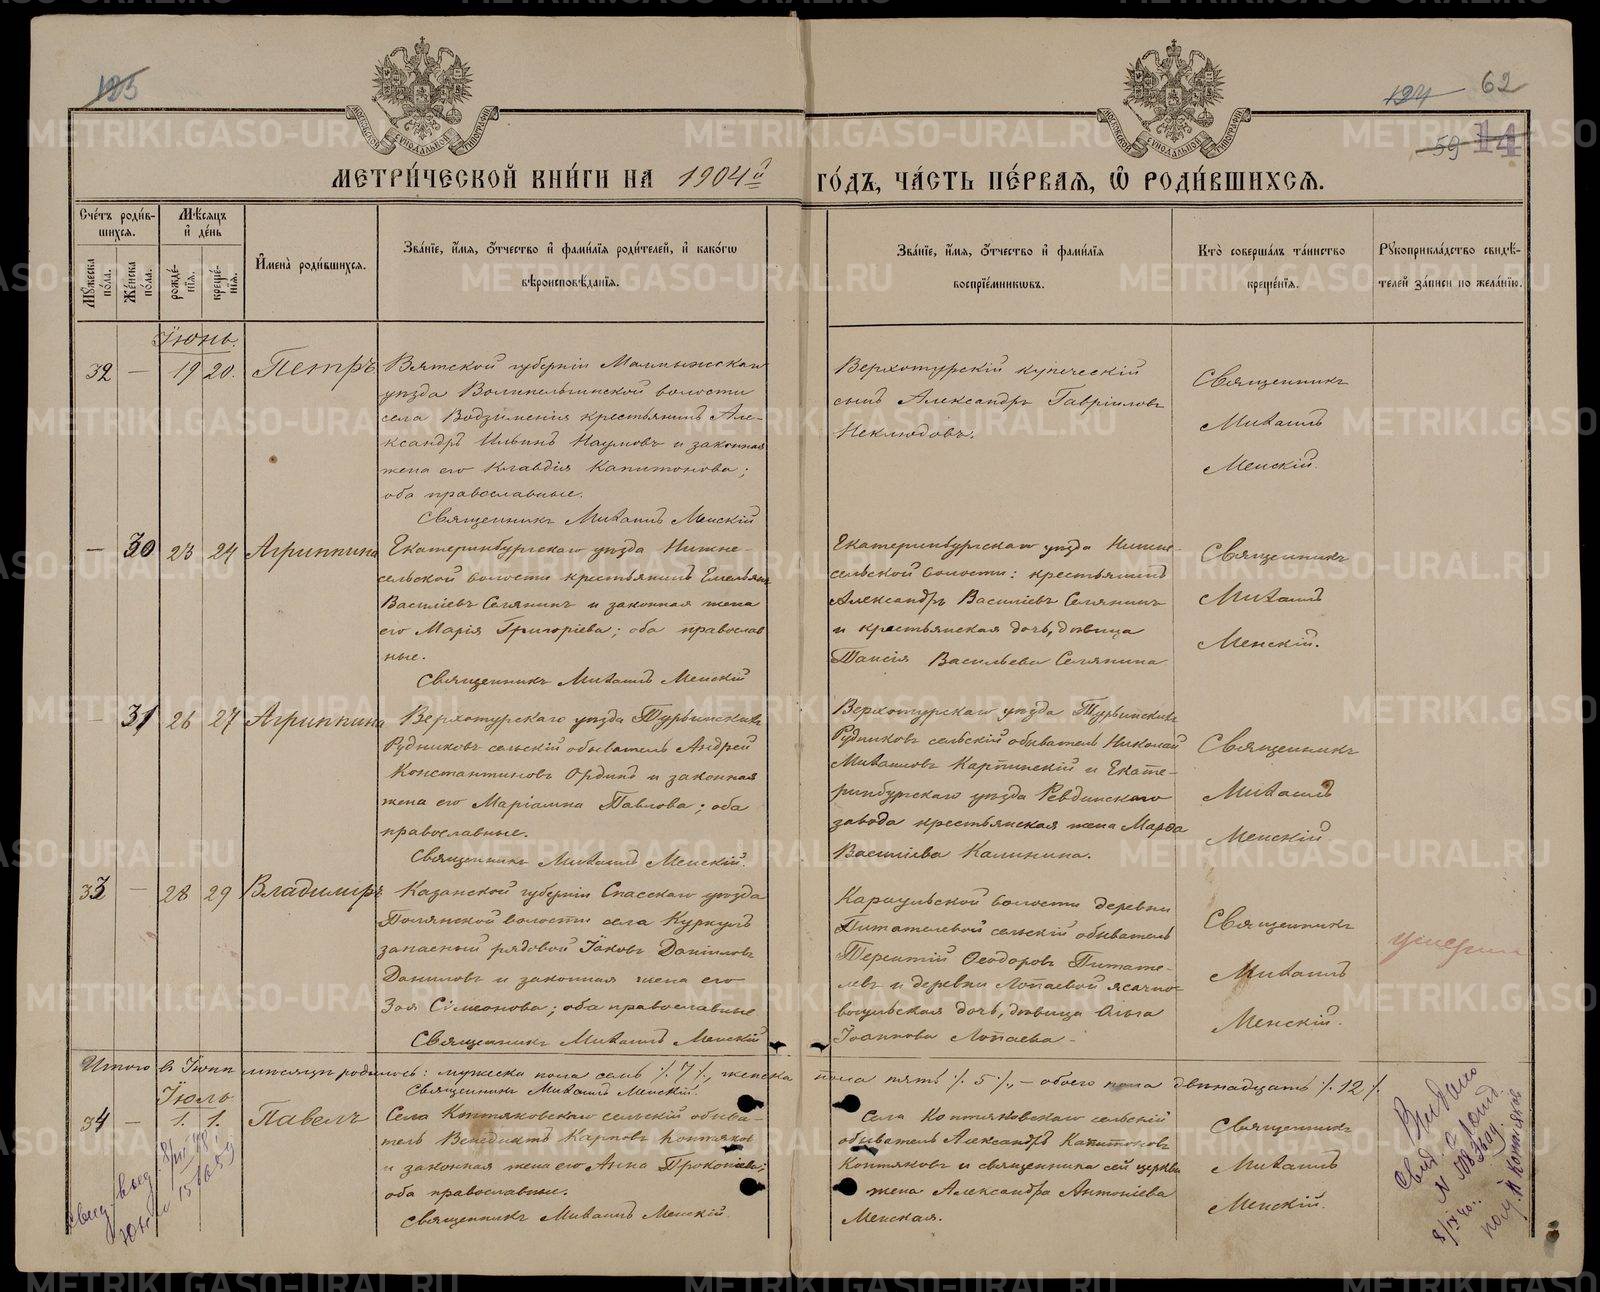 125
124 62
59 14
МОСКОВСКОЙ СѴНОДАЛЬНОЙ ТИПОГРАФІИ
МОСКОВСКОЙ СѴНОДАЛЬНОЙ ТИПОГРАФІИ
МЕТРИ́ЧЕСКОЙ КНИ́ГИ НА 1904й ГО́ДЪ, ЧА́СТЬ ПЕ́РВАѦ, Ѡ РОДИ́ВШИХСѦ.
Сче́тъ роди́в-
шихсѧ.
Мꙋжеска по́ла.
Же́нска по́ла.
Мѣ́сѧцъ и҆ де́нь
рожде́-
нїѧ.
креще́-
нїѧ.
И҆мена̀ роди́вшихсѧ.
Зва́нїе, и҆́мѧ, ѻ҆́тчество и҆ фами́лїѧ роди́телей, и҆ како́гѡ
вѣроисповѣ́данїѧ.
Зва́нїе, и҆́мѧ, ѻ҆́тчество и҆ фами́лїѧ
воспрїе́мникѡвъ.
Кто̀ соверша́лъ та́инство
креще́нїѧ.
Рꙋкоприкла́дство свидѣ́-
телей за́писи по жела́нїю.
Іюнь.
32 — 19 20. Петръ
Вятской губерніи Малмыжскаго
уѣзда Волипельгинской волости
села Водзимонья крестьянинъ Але-
ксандръ Ильинъ Наумовъ и законная
жена его Клавдія Капитонова;
оба православные.
Священникъ Михаилъ Менскій
Верхотурскій купеческій
сынъ Александръ Гавріиловъ
Неклюдовъ.
Священникъ
Михаилъ
Менскій.
— 30 23 24 Агриппина
Екатеринбургскаго уѣзда Нижне-
сельской волости крестьянинъ Емельянъ
Василіевъ Селянинъ и законная жена
его Марія Григоріева; оба православ
ные.
Священникъ Михаилъ Менскій
Екатеринбургскаго уѣзда Нижне-
сельской волости: крестьянинъ
Александръ Василіевъ Селянинъ
и крестьянская дочь, дѣвица
Таисія Васильева Селянина
Священникъ
Михаилъ
Менскій.
— 31 26 27 Агриппина
Верхотурскаго уѣзда Турьинскихъ
Рудниковъ сельскій обыватель Андрей
Константиновъ Ординъ и законная
жена его Маріамна Павлова; оба
православные.
Священникъ Михаилъ Менскій.
Верхотурскаго уѣзда Турьинскихъ
Рудниковъ сельскій обыватель Николай
Михаиловъ Карпинскій и Екате-
ринбургскаго уѣзда Ревдинскаго
завода крестьянская жена Марѳа
Василіева Калинина.
Священникъ
Михаилъ
Менскій
33 — 28 29 Владиміръ
Казанской губерніи Спасскаго уѣзда
Полянской волости села Куркуль
запасный рядовой Іаковъ Даніиловъ
Даниловъ и законная жена его
Зоя Сімеонова; оба православные
Священникъ Михаилъ Менскій
Караульской волости деревни
Питателевой сельскій обыватель
Терентій Ѳеодоровъ Питате-
левъ и деревни Лопаевой ясачно-
вогульская дочь, дѣвица Ольга
Іоаннова Лопаева.
Священникъ
Михаилъ
Менскій.
Итого въ Іюнѣ мѣсяцѣ родилось: мужеска пола семь /7/, женска пола пять /5/, — обоего пола двѣнадцать /12/.
Священникъ Михаилъ Менскій.
Іюль
34 — 1. 1. Павелъ
Села Коптяковскаго сельскій обыва-
тель Венедиктъ Карповъ Коптяковъ
и законная жена его Анна Прокопіева;
оба православные.
Священникъ Михаилъ Менскій.
Села Коптяковскаго сельскій
обыватель Александръ Капитоновъ
Коптяковъ и священника сей церкви
жена Александра Антоніева
Менская.
Священникъ
Михаилъ
Менскій.